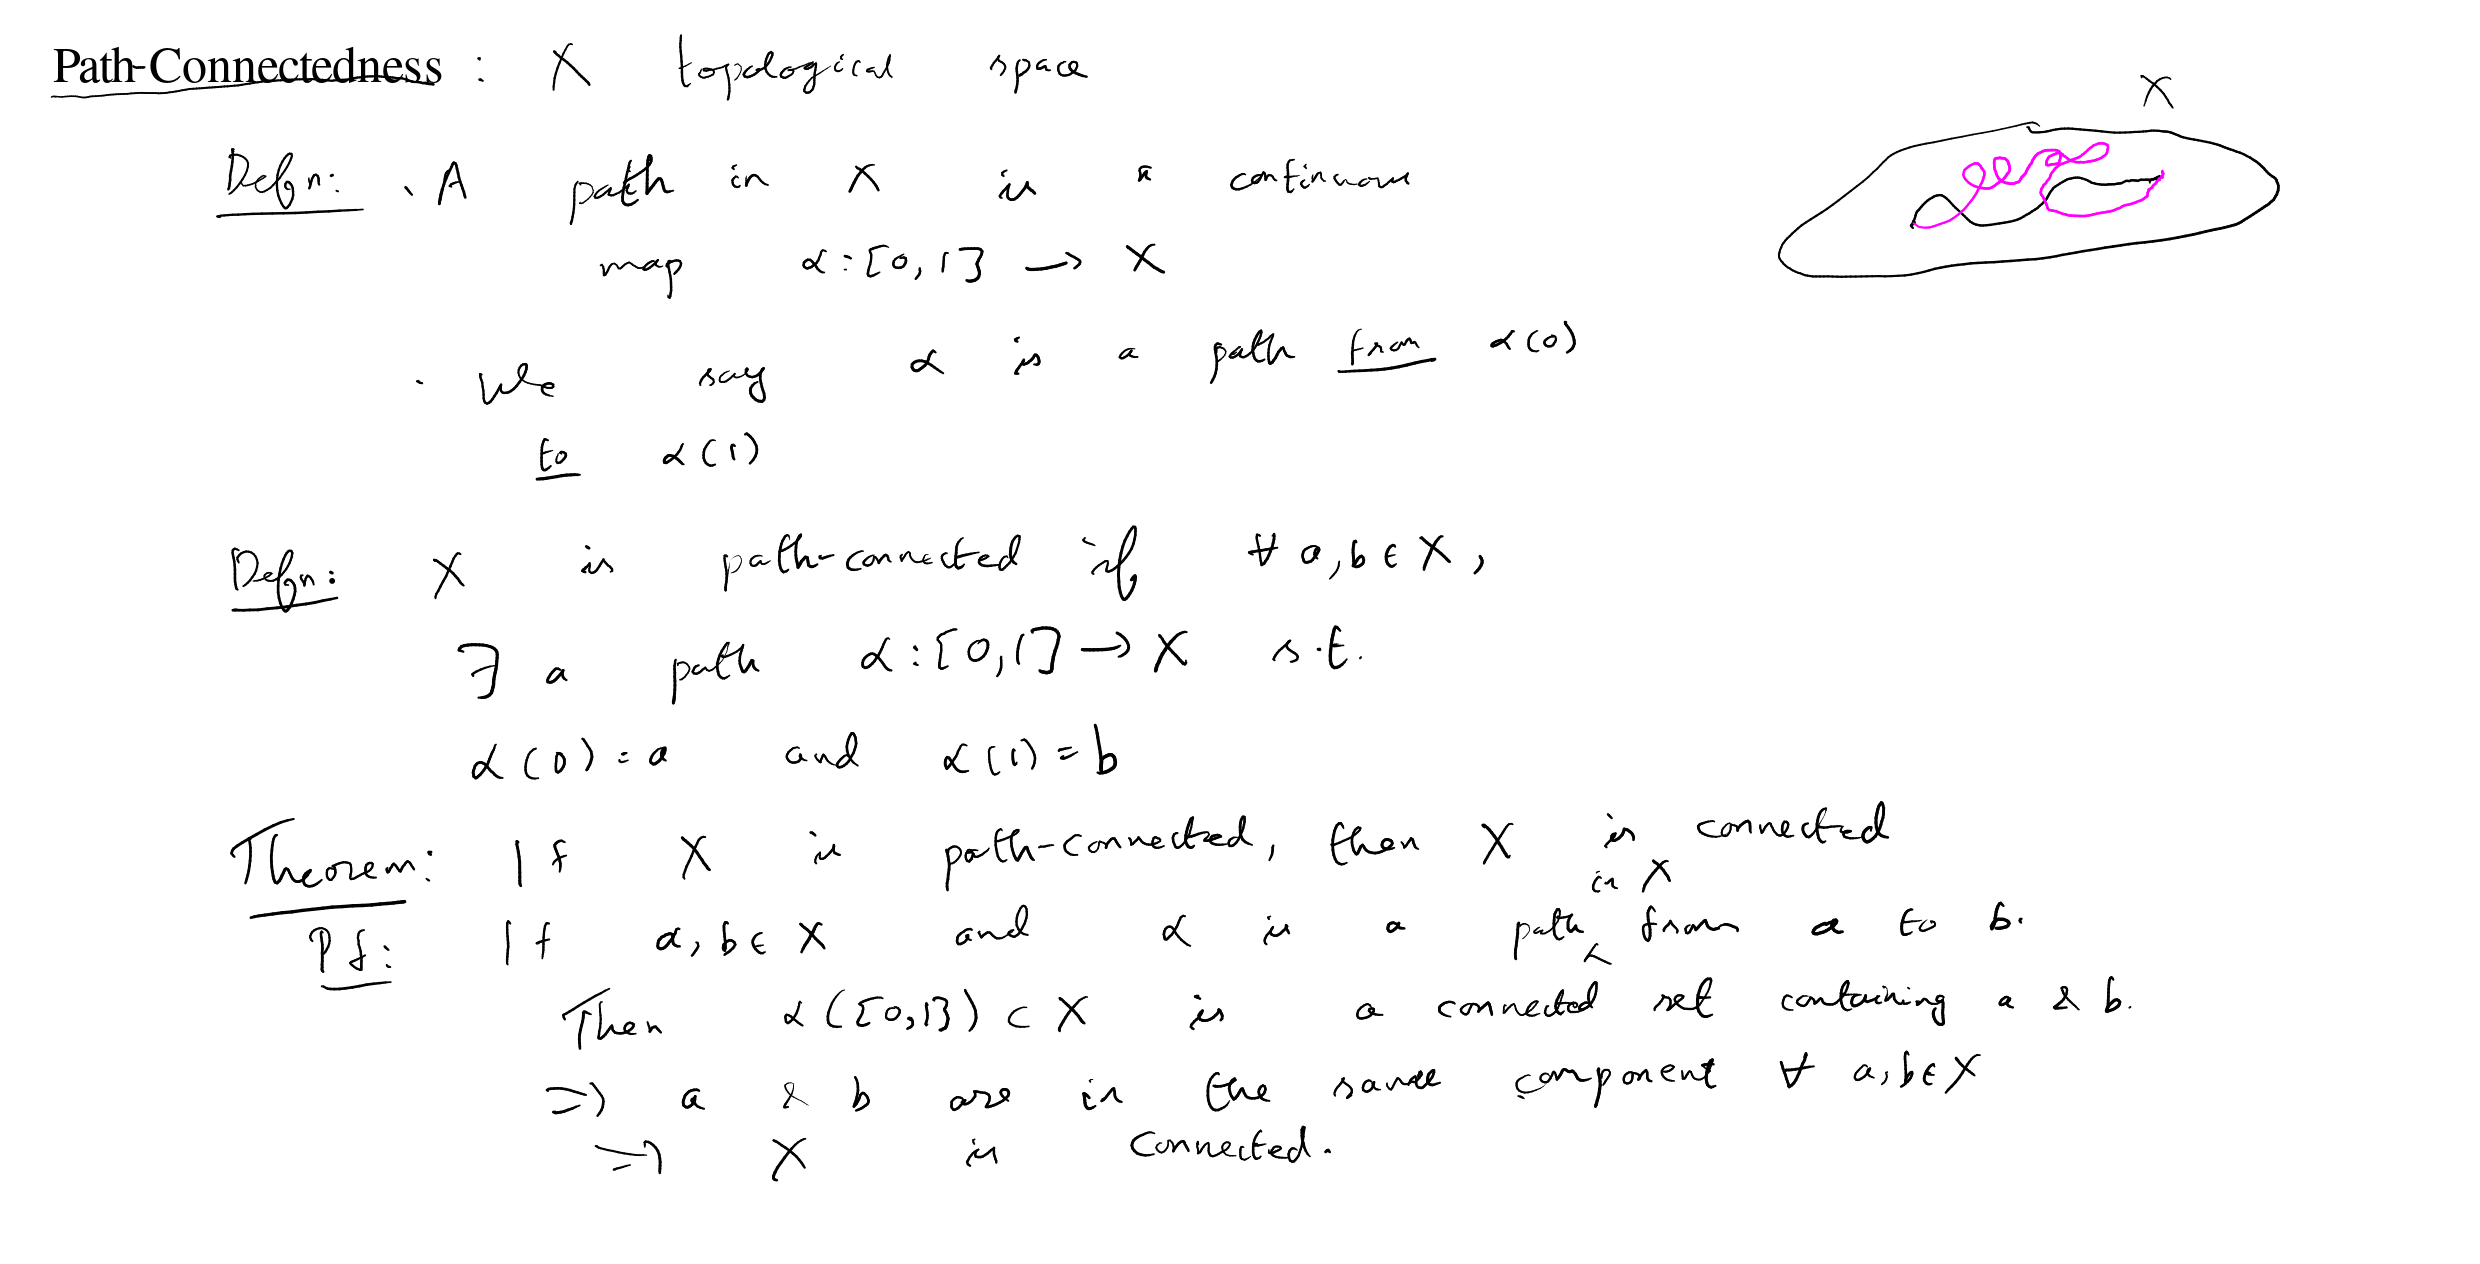 Path-Connectedness : X topological space
X
Defn: · A path in X is a continuous
map α : [0,1] → X
· We say α is a path from α(0)
to α(1)
Defn: X is path-connected if ∀ a,b ∈ X,
∃ a path α : [0,1] → X s.t.
α(0) = a and α(1) = b
Theorem: If X is path-connected, then X is connected
in X
Pf: If a,b ∈ X and α is a path from a to b.
Then α([0,1]) ⊂ X is a connected set containing a & b.
⇒ a & b are in the same component ∀ a,b ∈ X
⇒ X is connected.